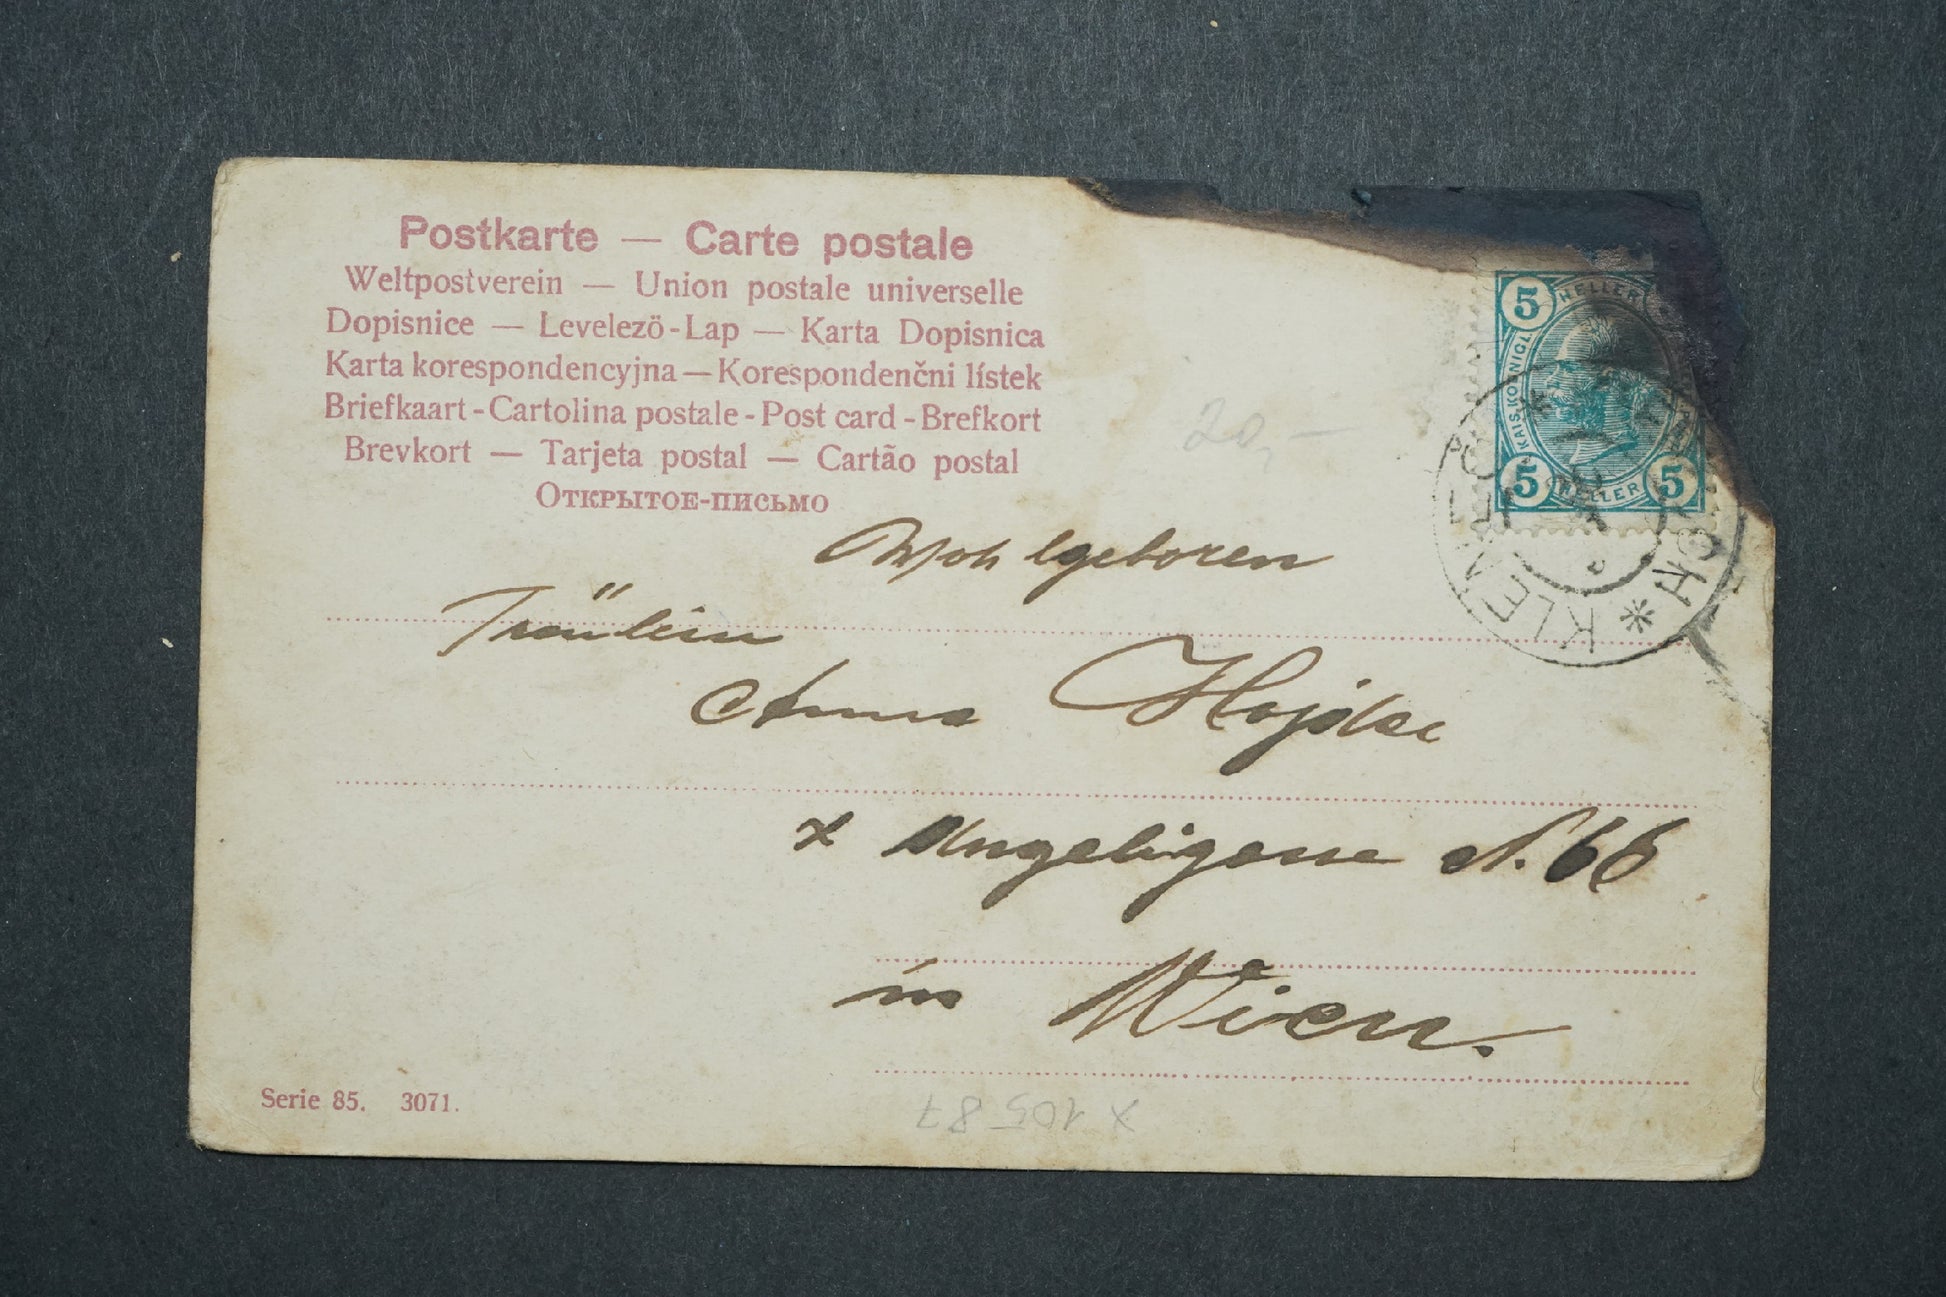 Postkarte — Carte postale
Weltpostverein — Union postale universelle
Dopisnice — Levelezö-Lap — Karta Dopisnica
Karta korespondencyjna — Korespondenčni lístek
Briefkaart - Cartolina postale - Post card - Brefkort
Brevkort — Tarjeta postal — Cartão postal
Открытое-письмо
5 HELLER
KAIS. KOENIGL.
5 HELLER 5
20,—
Wohlgeboren
Fräulein
Anna
x N. 66
in Wien.
Serie 85. 3071.
x 105 87